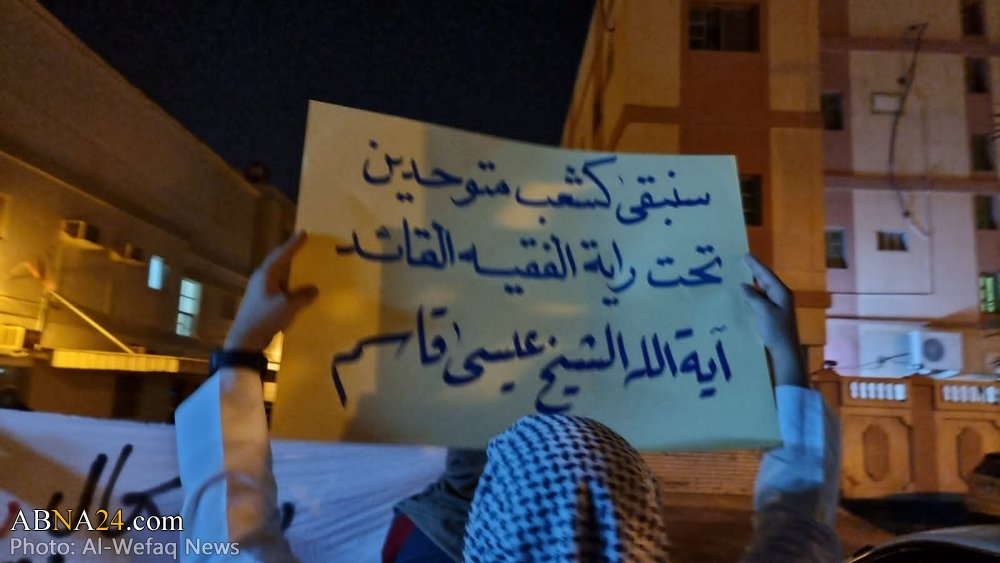 سنبقى كشعب متوحدين
تحت راية الفقيه القائد
آية الله الشيخ عيسى قاسم
ABNA24.com
Photo: Al-Wefaq News